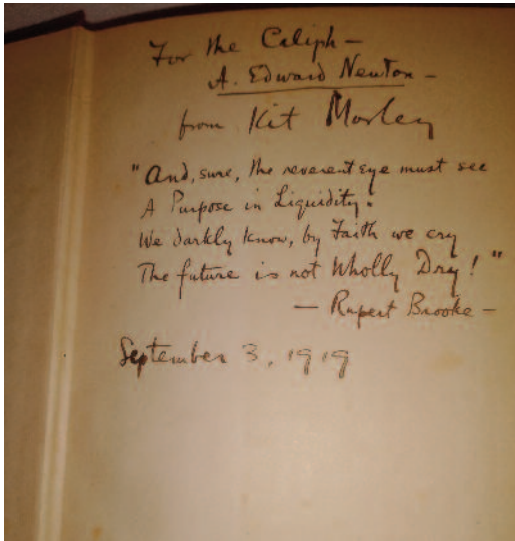 For the Caliph —
A. Edward Newton —
from Kit Morley
"And, sure, the reverent eye must see
A Purpose in Liquidity.
We darkly know, by Faith we cry
The future is not Wholly Dry!"
— Rupert Brooke —
September 3, 1919